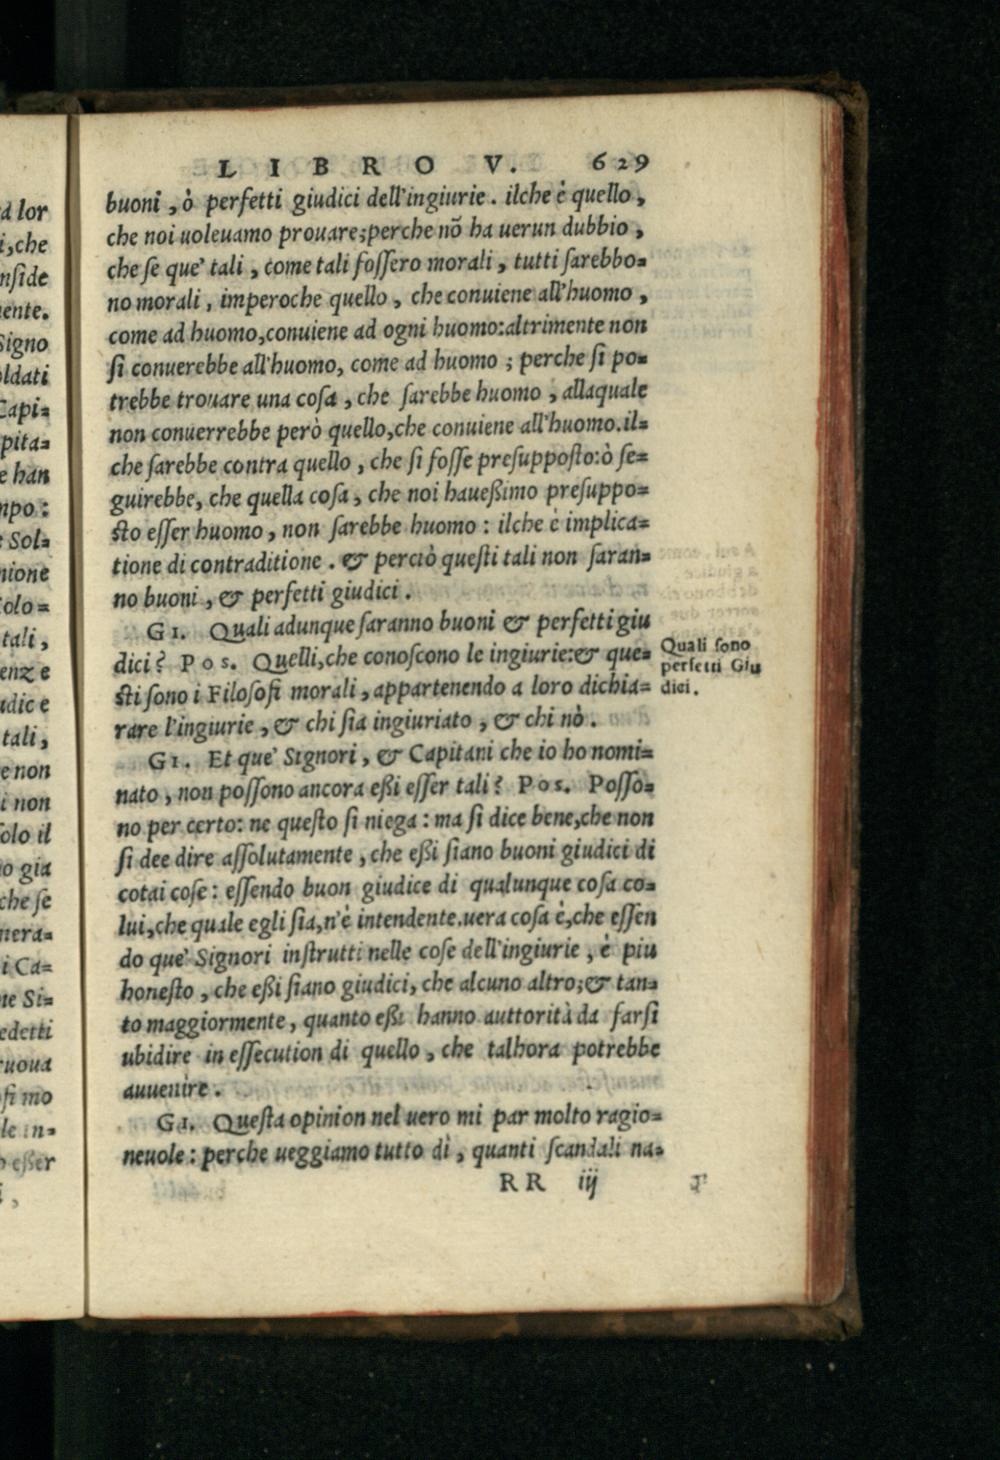 LIBRO V. 629
buoni, ò perfetti giudici dell'ingiurie. ilche è quello,
che noi uoleuamo prouare; perche nõ ha uerun dubbio,
che se que' tali, come tali fossero morali, tutti sarebbo=
no morali, imperoche quello, che conuiene all'huomo,
come ad huomo, conuiene ad ogni huomo: altrimente non
si conuerebbe all'huomo, come ad huomo; perche si po=
trebbe trouare una cosa, che sarebbe huomo, allaquale
non conuerrebbe però quello, che conuiene all'huomo. il=
che sarebbe contra quello, che si fosse presupposto: ò se=
guirebbe, che quella cosa, che noi haueßimo presuppo=
sto esser huomo, non sarebbe huomo: ilche è implica=
tione di contraditione. & perciò questi tali non saran=
no buoni, & perfetti giudici.
GI. Quali adunque saranno buoni & perfetti giu
dici? POS. Quelli, che conoscono le ingiurie: & que=
sti sono i Filosofi morali, appartenendo a loro dichia=
rare l'ingiurie, & chi sia ingiuriato, & chi nò.
Quali sono
perfetti Giu
dici.
GI. Et que' Signori, & Capitani che io ho nomi=
nato, non possono ancora eßi esser tali? POS. Posso=
no per certo: ne questo si niega: ma si dice bene, che non
si dee dire assolutamente, che eßi siano buoni giudici di
cotai cose: essendo buon giudice di qualunque cosa co=
lui, che quale egli sia, n'è intendente. uera cosa è, che essen
do que' Signori instrutti nelle cose dell'ingiurie, è piu
honesto, che eßi siano giudici, che alcuno altro; & tan=
to maggiormente, quanto eßi hanno auttorità da farsi
ubidire in essecution di quello, che talhora potrebbe
auuenire.
GI. Questa opinion nel uero mi par molto ragio=
neuole: perche ueggiamo tutto dì, quanti scandali na=
RR iij